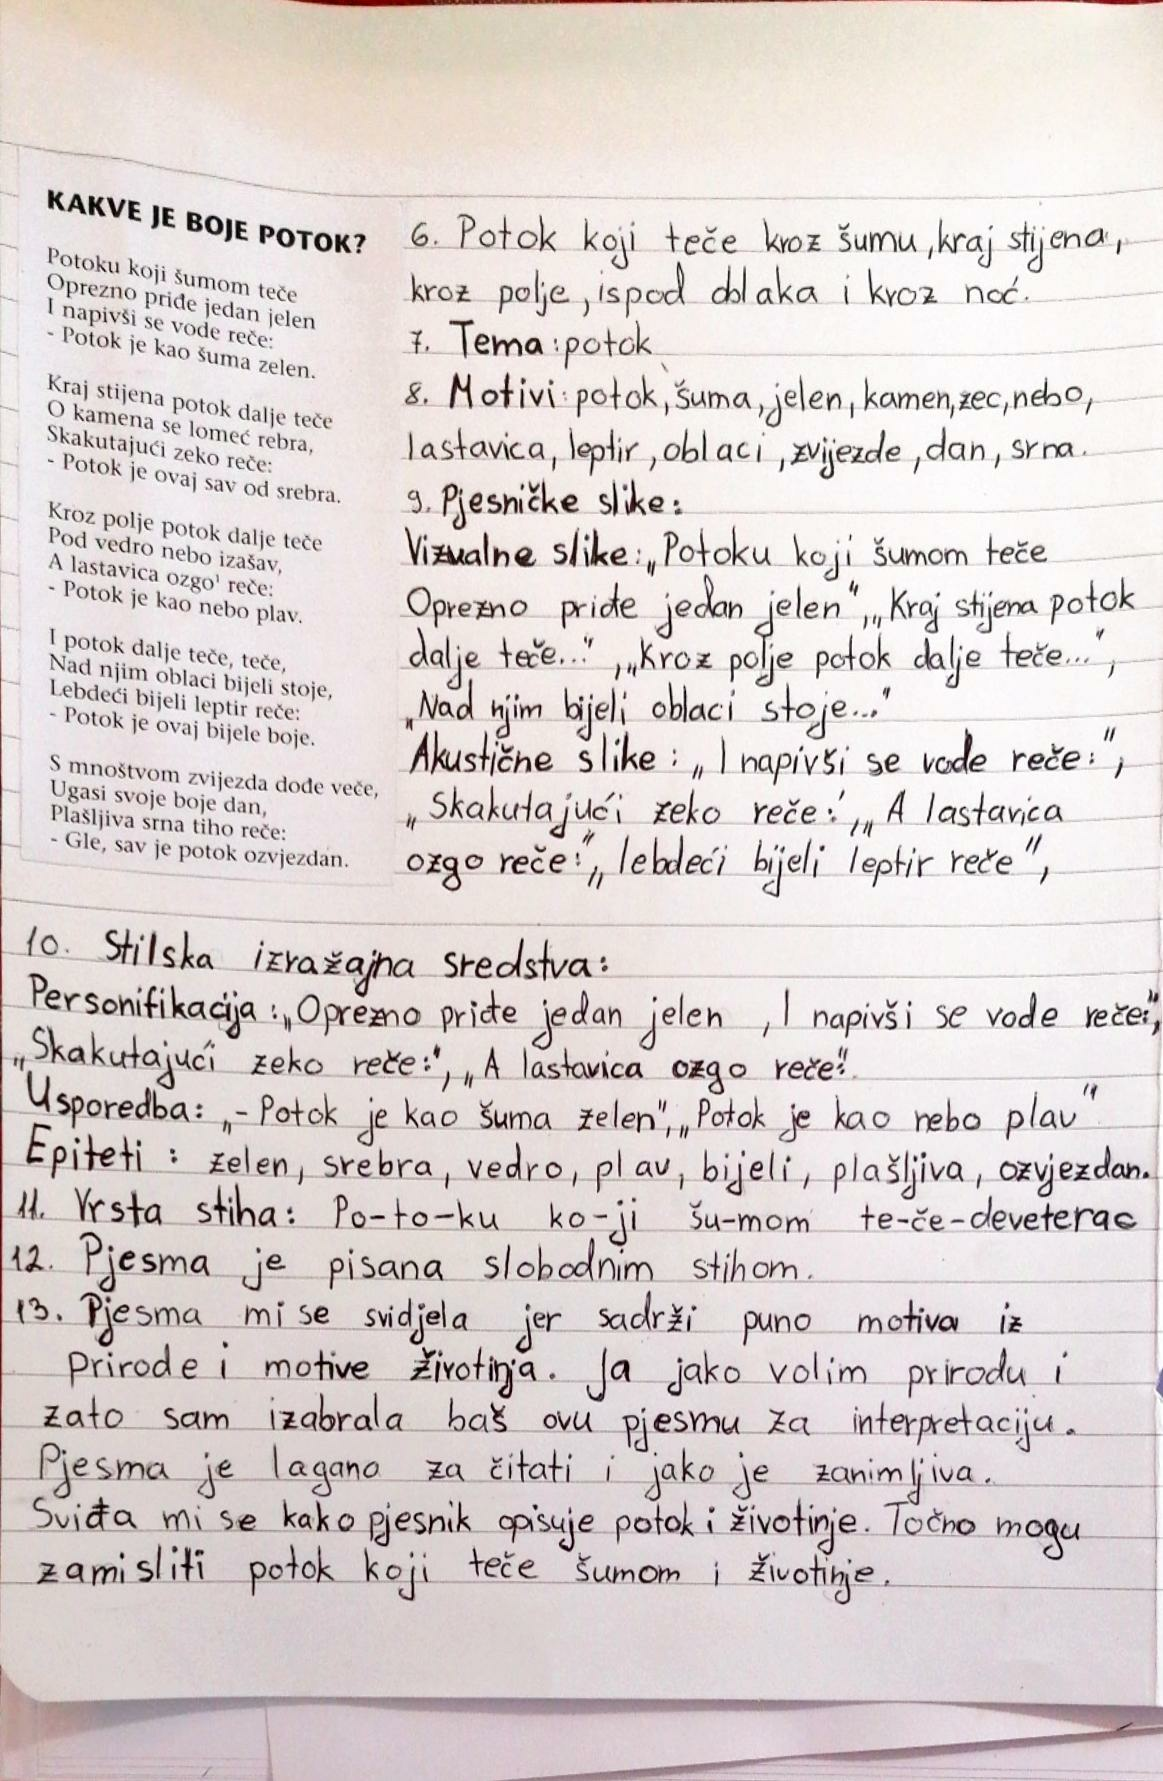 KAKVE JE BOJE POTOK?
Potoku koji šumom teče
Oprezno priđe jedan jelen
I napivši se vode reče:
- Potok je kao šuma zelen.
Kraj stijena potok dalje teče
O kamena se lomeć rebra,
Skakutajući zeko reče:
- Potok je ovaj sav od srebra.
Kroz polje potok dalje teče
Pod vedro nebo izašav,
A lastavica ozgo¹ reče:
- Potok je kao nebo plav.
I potok dalje teče, teče,
Nad njim oblaci bijeli stoje,
Lebdeći bijeli leptir reče:
- Potok je ovaj bijele boje.
S mnoštvom zvijezda dođe veče,
Ugasi svoje boje dan,
Plašljiva srna tiho reče:
- Gle, sav je potok ozvjezdan.
6. Potok koji teče kroz šumu, kraj stijena,
kroz polje, ispod oblaka i kroz noć.
7. Tema: potok
8. Motivi: potok, šuma, jelen, kamen, zec, nebo,
lastavica, leptir, oblaci, zvijezde, dan, srna.
9. Pjesničke slike:
Vizualne slike: „Potoku koji šumom teče
Oprezno priđe jedan jelen", „Kraj stijena potok
dalje teče...", „Kroz polje potok dalje teče...",
„Nad njim bijeli oblaci stoje..."
Akustične slike: „I napivši se vode reče:",
„Skakutajući zeko reče:', „A lastavica
ozgo reče:", „lebdeći bijeli leptir reče",
10. Stilska izražajna sredstva:
Personifikacija: „Oprezno priđe jedan jelen, I napivši se vode reče:",
„Skakutajući zeko reče:", „A lastavica ozgo reče".
Usporedba: „- Potok je kao šuma zelen", „Potok je kao nebo plav"
Epiteti: zelen, srebra, vedro, plav, bijeli, plašljiva, ozvjezdan.
11. Vrsta stiha: Po-to-ku ko-ji šu-mom te-če-deveterac
12. Pjesma je pisana slobodnim stihom.
13. Pjesma mi se svidjela jer sadrži puno motiva iz
prirode i motive životinja. Ja jako volim prirodu i
zato sam izabrala baš ovu pjesmu za interpretaciju.
Pjesma je lagana za čitati i jako je zanimljiva.
Sviđa mi se kako pjesnik opisuje potok i životinje. Točno mogu
zamisliti potok koji teče šumom i životinje.